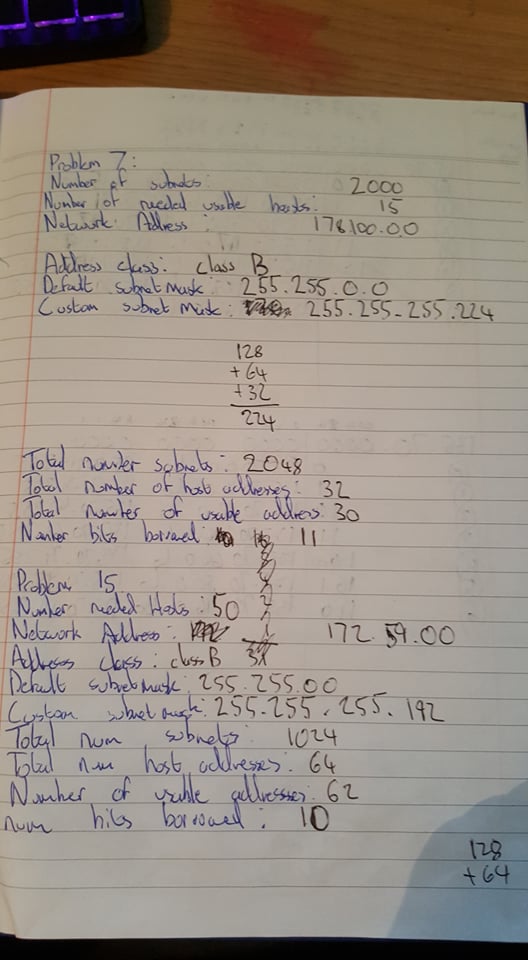 Problem 7:
Number of subnets: 2000
Number of needed usable hosts: 15
Network Address : 178100.0.0
Address class: class B
Default subnet mask : 255.255.0.0
Custom subnet mask : 255.255.255.224
128
+64
+32
224
Total number subnets: 2048
Total number of host addresses: 32
Total number of usable address: 30
Number bits borrowed 11
Problem 15
Number needed Hosts: 50
Network Address: 172.59.00
Address class: class B
Default subnet mask: 255.255.00
Custom subnet mask: 255.255.255.192
Total num subnets: 1024
Total num host addresses: 64
Number of usable addresses: 62
num bits borrowed: 10
128
+64